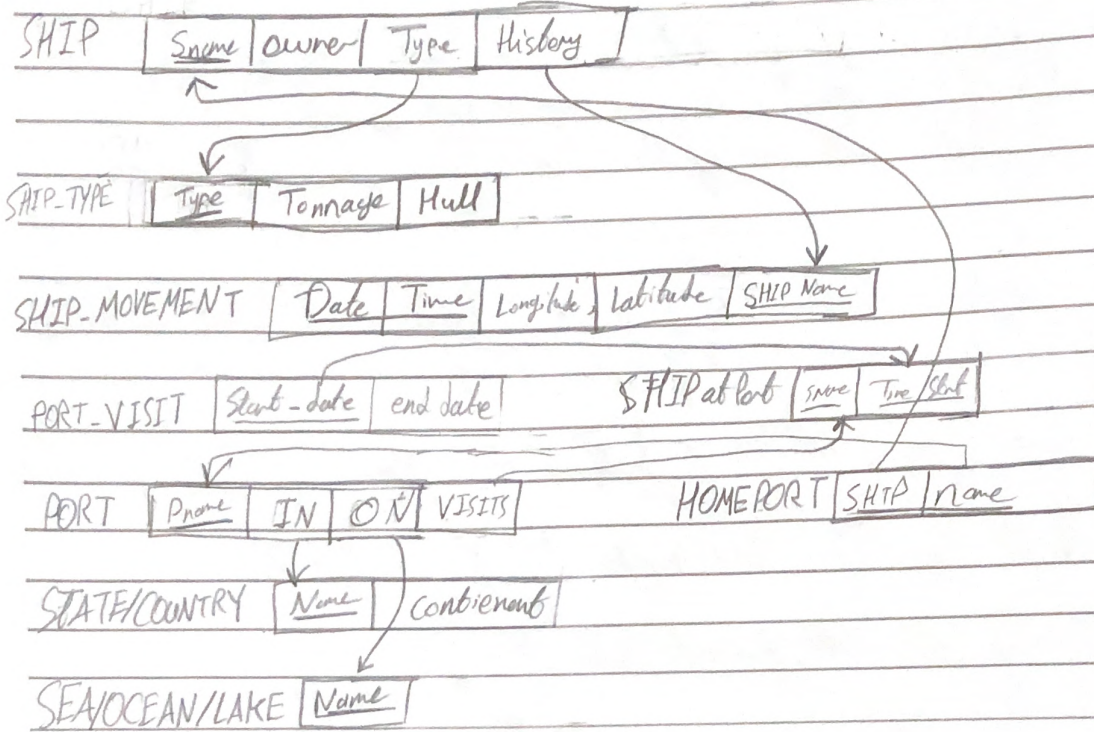 SHIP Sname owner Type History
SHIP_TYPE Type Tonnage Hull
SHIP_MOVEMENT Date Time Longitude, Latitude SHIP Name
PORT_VISIT Start_date end date SHIP at Port sname Time Start
PORT Pname IN ON VISITS HOMEPORT SHIP name
STATE/COUNTRY Name Contienent
SEA/OCEAN/LAKE Name